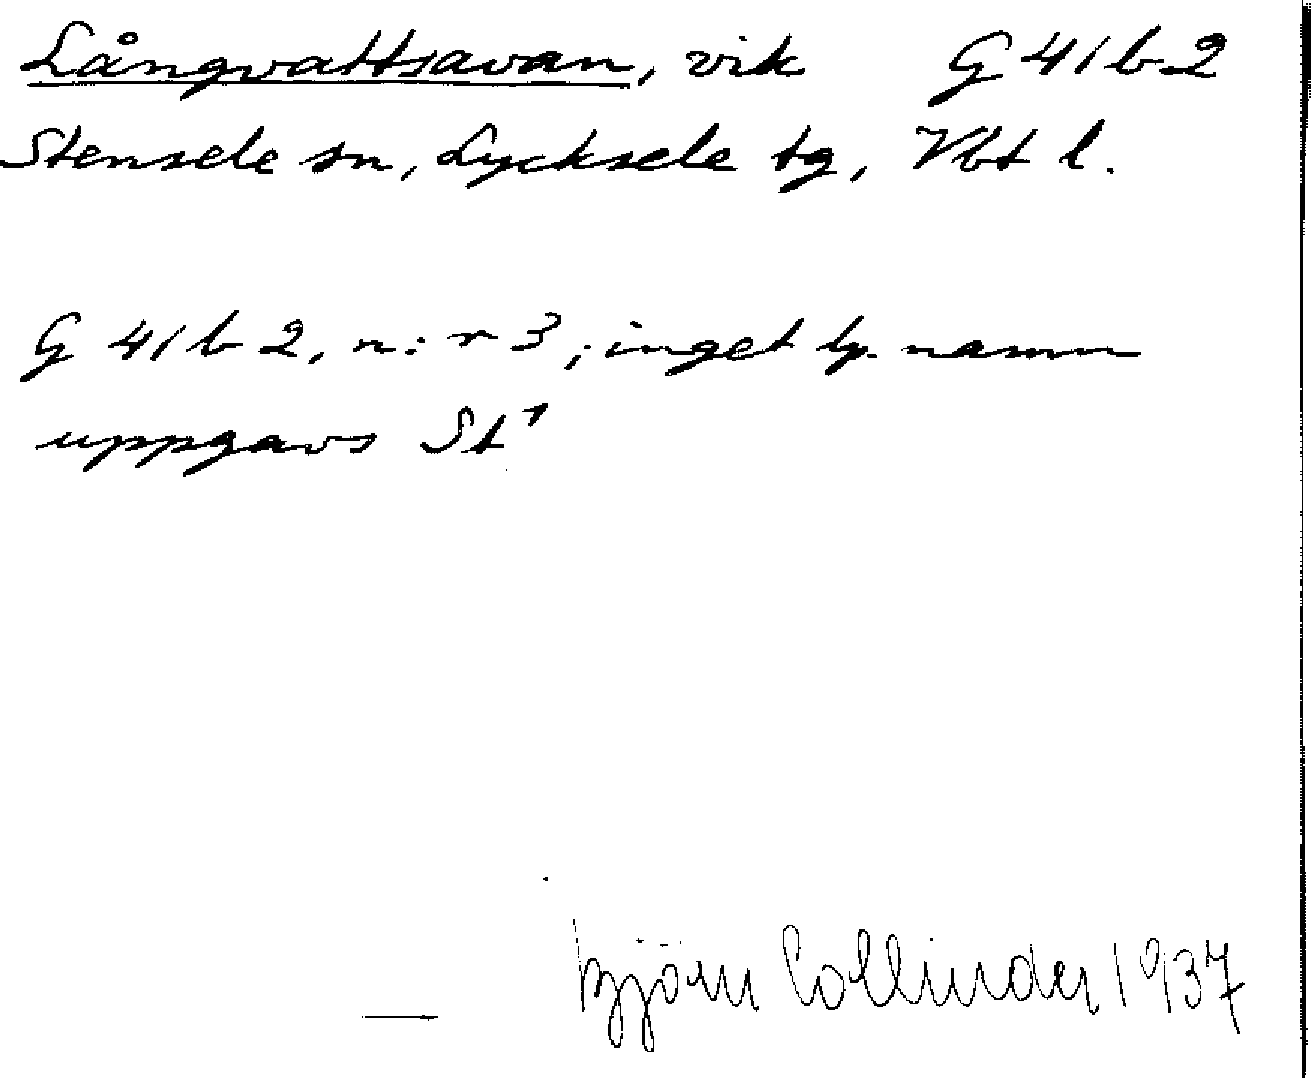 Långvattsavan, vik G 41 b 2
Stensele sn, Lycksele tg, Vbt l.
G 41 b 2, n:r 3; inget lp. namn
uppgavs St¹
Björn Collinder 1937